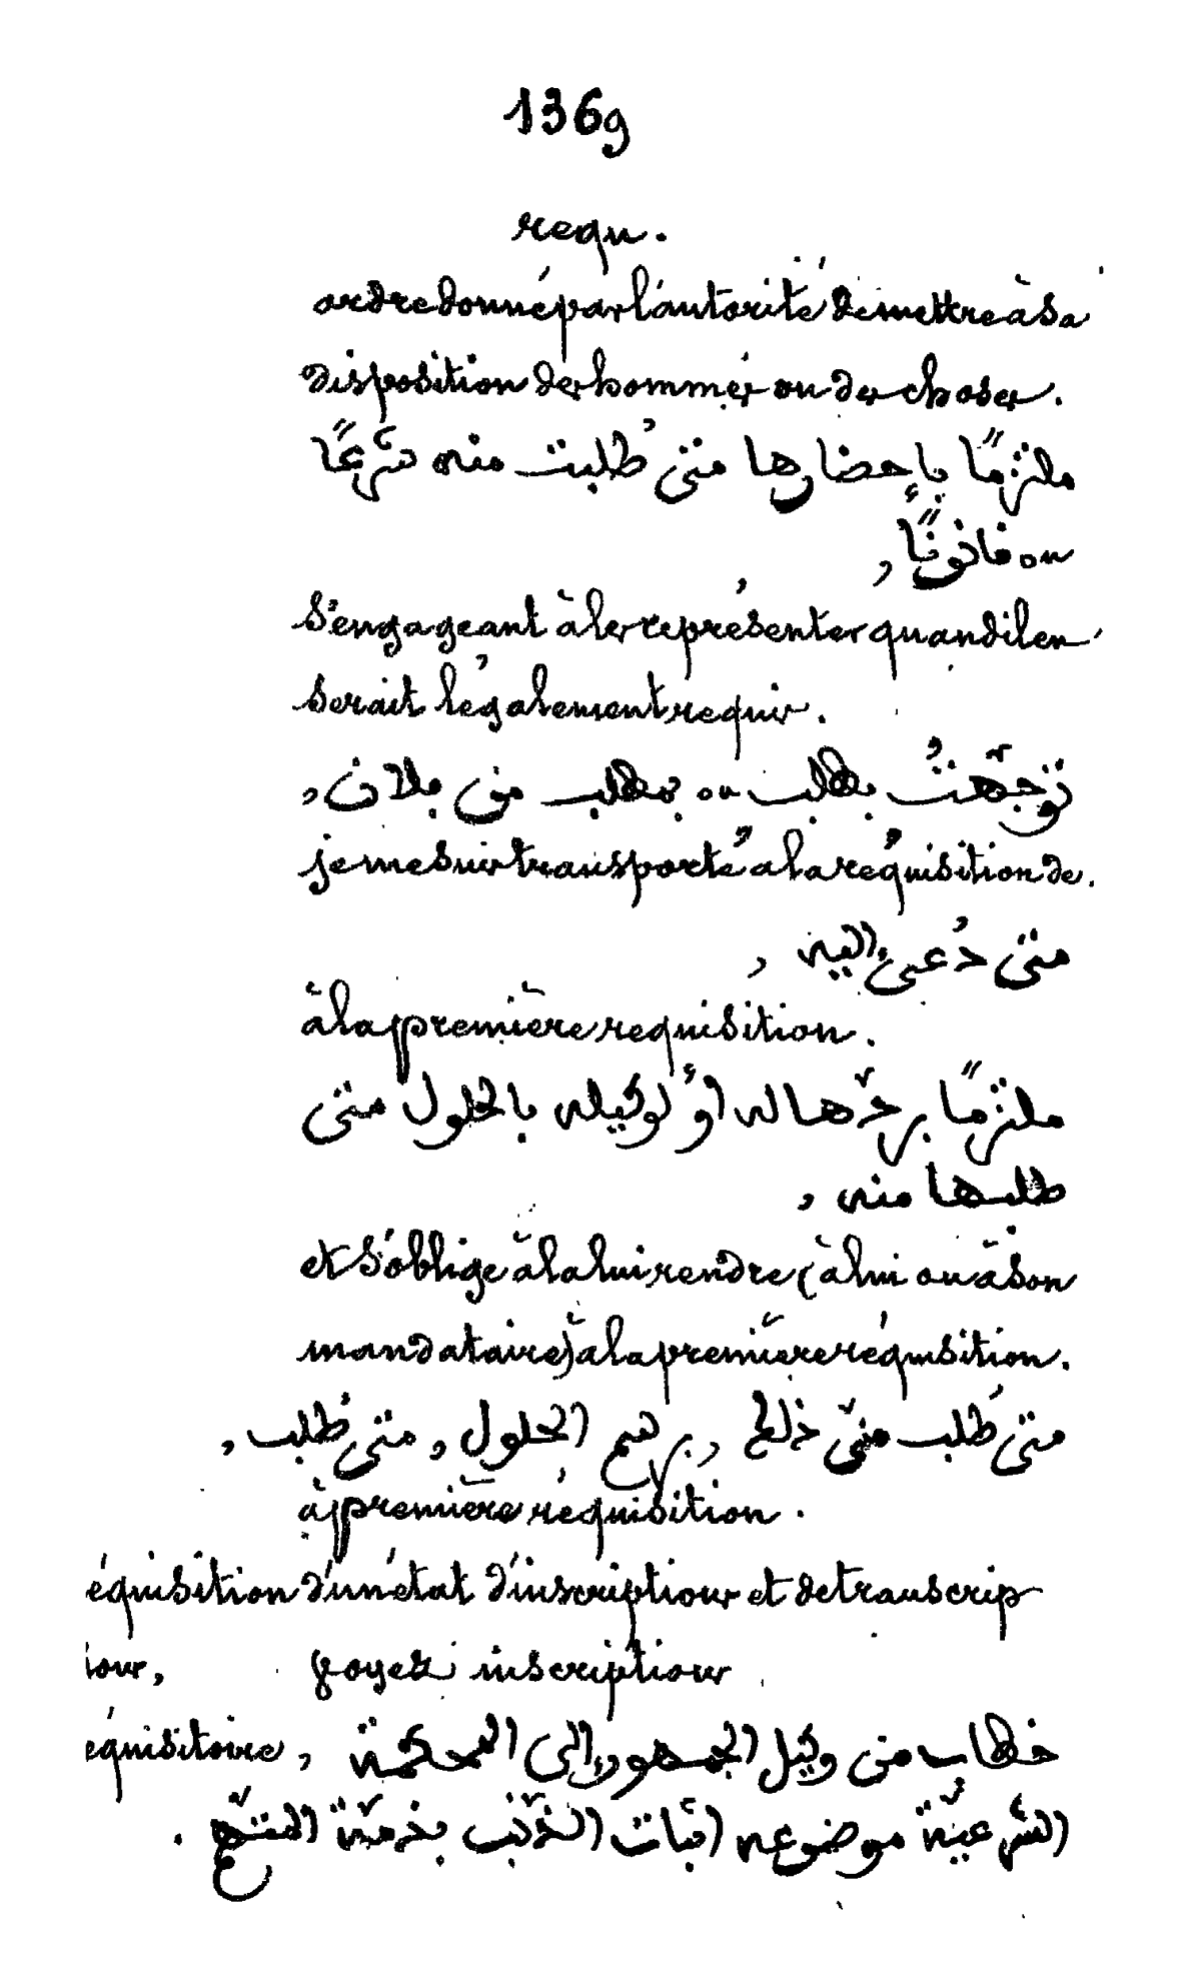 1369
requ.
ordre donné par l'autorité de mettre à sa
disposition des hommes ou des choses.
ملتزمًا بإحضارها متى طُلبت منه شرعًا
ou قانونًا,
S'engageant à les représenter quand il en
serait légalement requis.
توجّهتُ بطلب ou بمطلب من فلان,
je me suis transporté à la réquisition de.
متى دُعي إليه,
à la première requisition.
ملتزمًا بردّها له أو لوكيله بالحلول متى
طلبها منه,
et s'oblige à la lui rendre (à lui ou à son
mandataire) à la première réquisition.
متى طُلب منّي ذلك, برسم الحلول, متى طُلب,
à première réquisition.
équisition d'un état d'inscriptions et de transcrip
ions, Voyez inscriptions
équisitoire, خطاب من وكيل الجمهور إلى المحكمة
الشرعيّة موضوعه اثبات الذّنب بذمّة المتّهم.